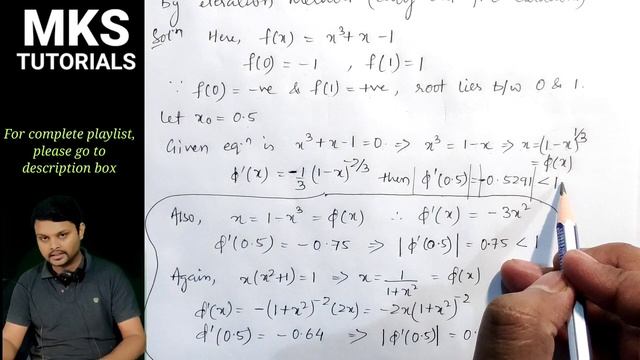 MKS
TUTORIALS
For complete playlist,
please go to
description box
by iteration method
Solⁿ Here, f(x) = x³ + x - 1
f(0) = -1 , f(1) = 1
∵ f(0) = -ve & f(1) = +ve, root lies b/w 0 & 1.
Let x₀ = 0.5
Given eqⁿ is x³ + x - 1 = 0 ⇒ x³ = 1 - x ⇒ x = (1 - x)^1/3
= ϕ(x)
ϕ'(x) = -1/3 (1 - x)^-2/3 then |ϕ'(0.5)| = |-0.5291| < 1
Also, x = 1 - x³ = ϕ(x) ∴ ϕ'(x) = -3x²
ϕ'(0.5) = -0.75 ⇒ |ϕ'(0.5)| = 0.75 < 1
Again, x(x² + 1) = 1 ⇒ x = 1/(1 + x²) = ϕ(x)
ϕ'(x) = -(1 + x²)^-2 (2x) = -2x(1 + x²)^-2
ϕ'(0.5) = -0.64 ⇒ |ϕ'(0.5)| = 0.